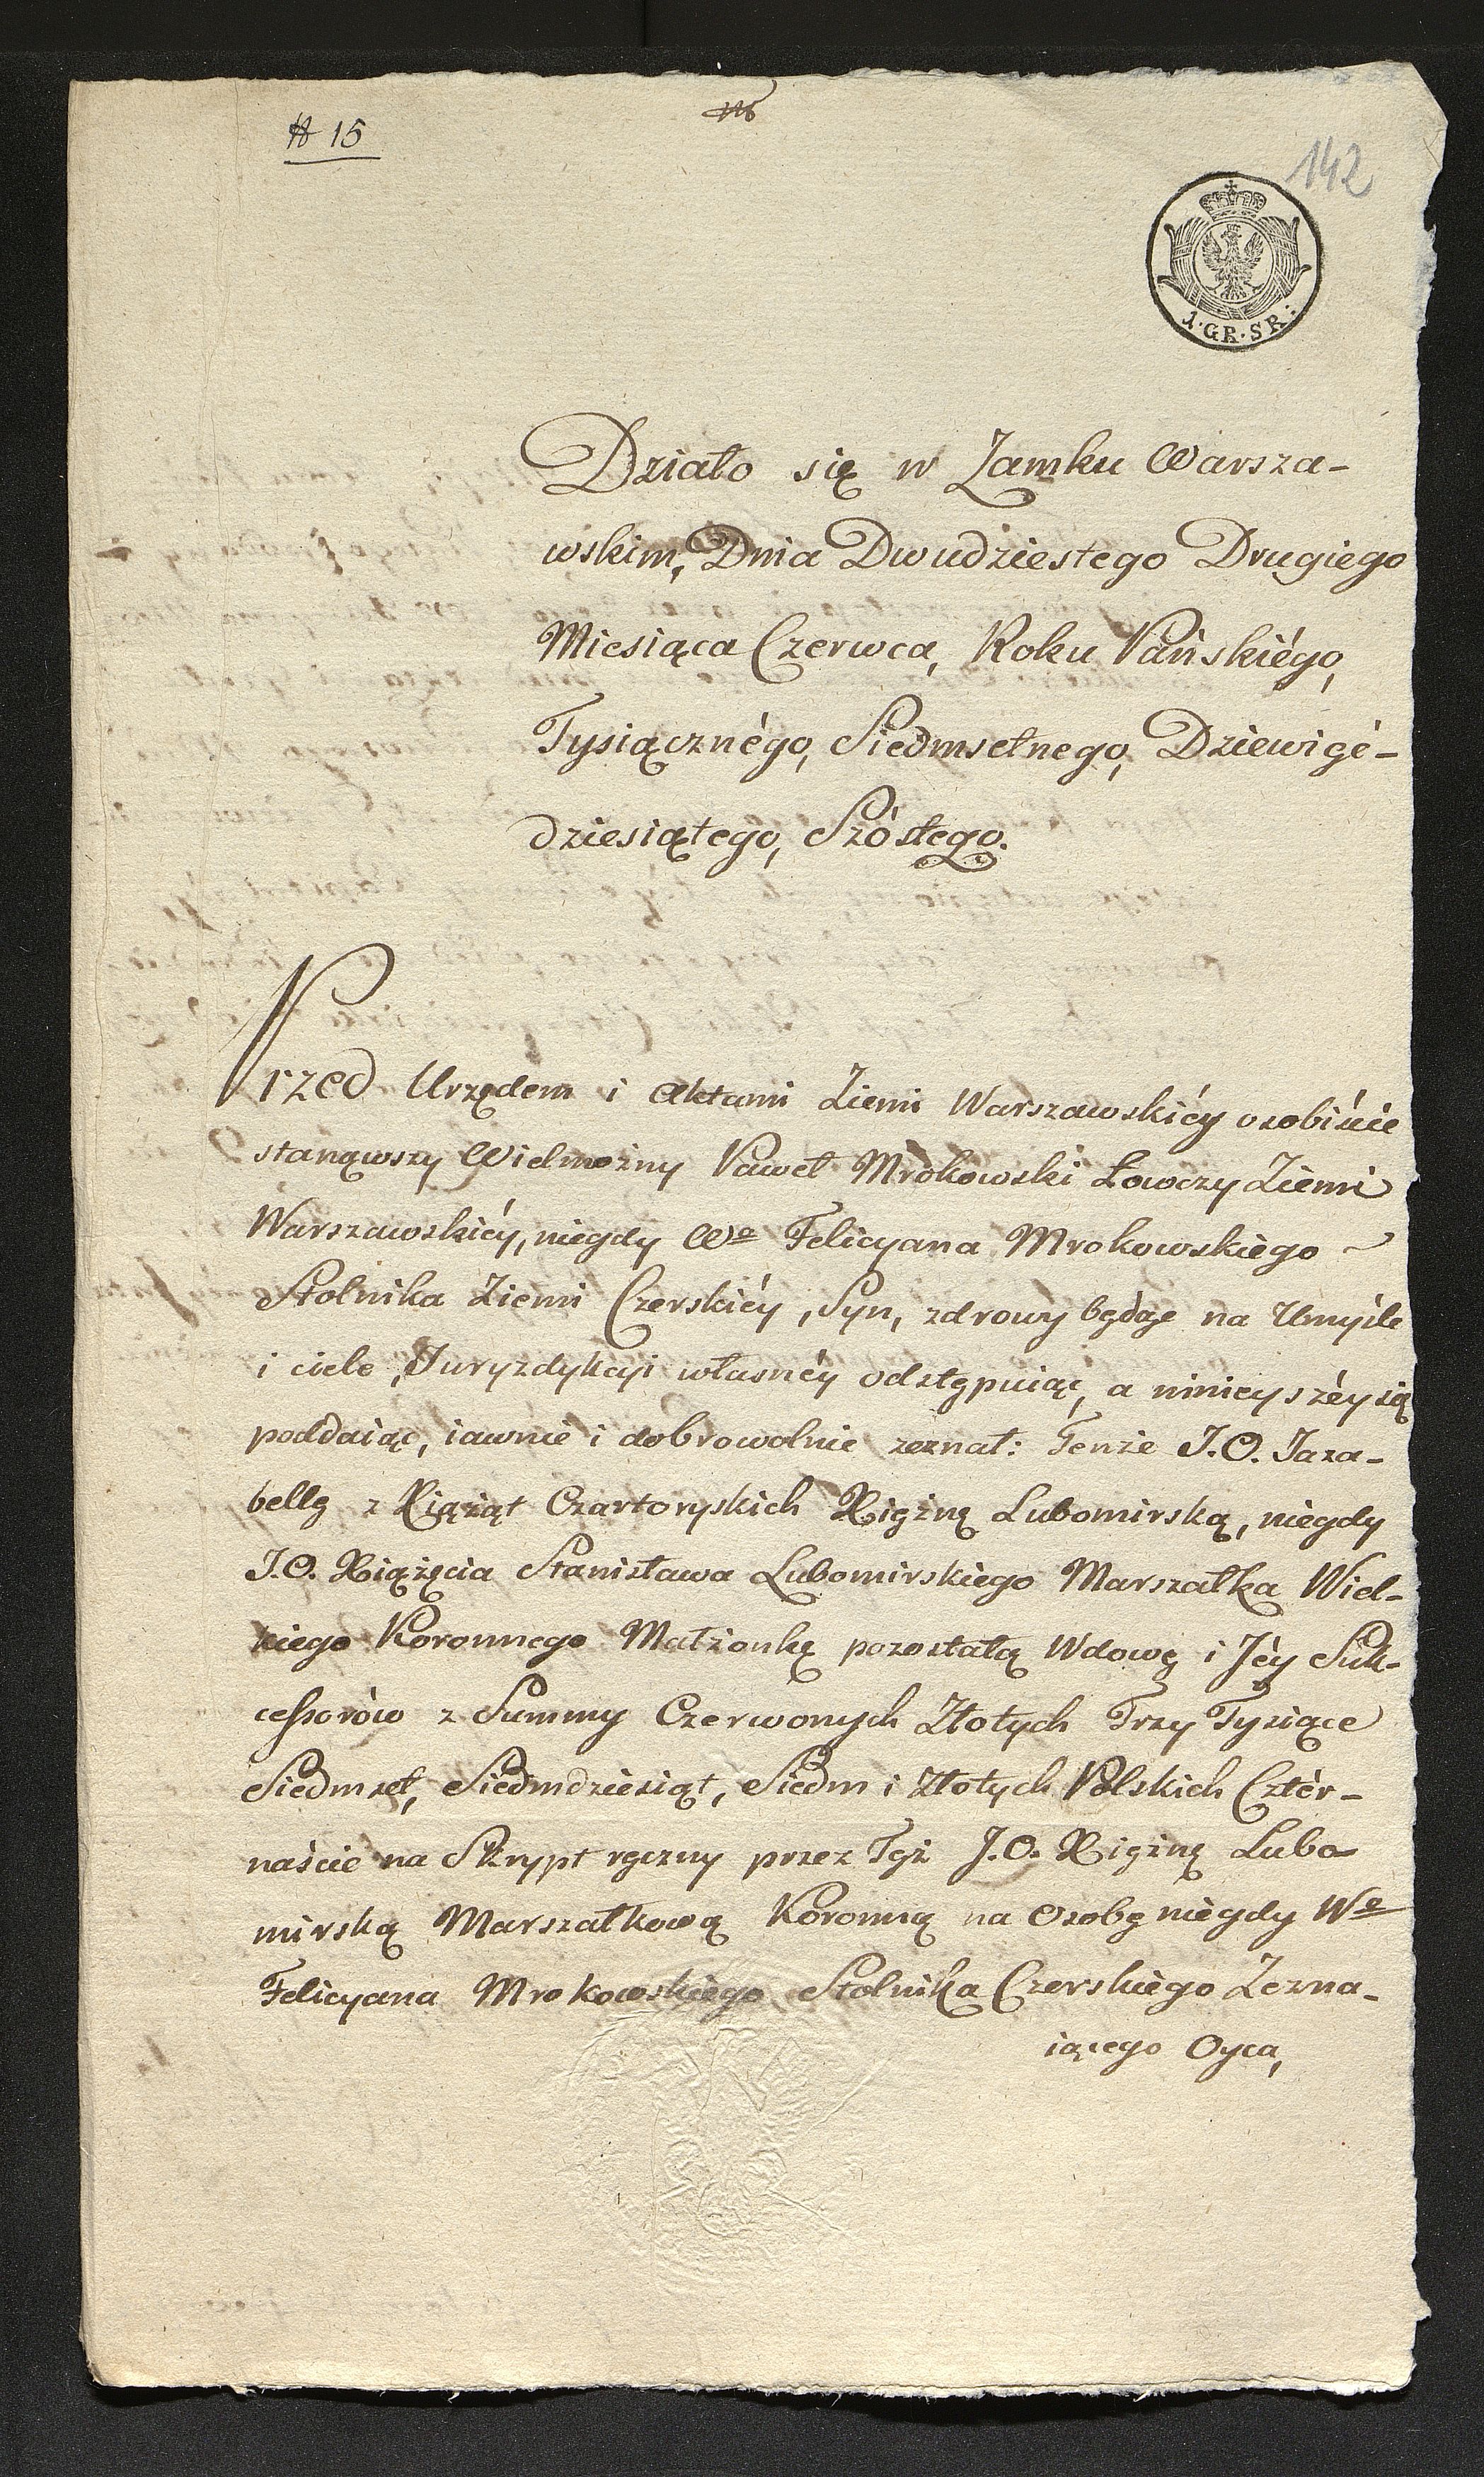 # 15
142
1·GR·SR:
Działo się w Zamku Warsza-
wskim, Dnia Dwudziestego Drugiego
Miesiąca Czerwca, Roku Pańskiégo,
Tysiącznégo, Siedmsetnego, Dziewięć-
dziesiątego, Szóstego.
Przed Urzędem i Aktami Ziemi Warszawskiéy osobiście
stanąwszy Wielmożny Paweł Mrokowski Łowczy Ziemi
Warszawskiéy, niegdy Wo Felicyana Mrokowskiego
Stolnika Ziemi Czerskiéy, Syn, zdrowy będąc na Umyśle
i ciele, Juryzdykcyi własnéy odstępuiąc, a ninieyszéy się
poddaiąc, iawnie i dobrowolnie zeznał: Iż tenże J.O. Iza-
bellę z Xiążąt Czartoryskich Xiężnę Lubomirską, niegdy
J.O. Xiążęcia Stanisława Lubomirskiego Marszałka Wiel-
kiego Koronnego Małżonkę pozostałą Wdowę i Jéy Suk-
cessorów z Summy Czerwonych Złotych Trzy Tysiące
Siedmset, Siedmdziesiąt, Siedm i Złotych Polskich Cztér-
naście na Skrypt ręczny przez Tęż J.O. Xiężnę Lubo-
mirską Marszałkową Koronną na Osobę niegdy Wo
Felicyana Mrokowskiego Stolnika Czerskiego Zezna-
iącego Oyca,